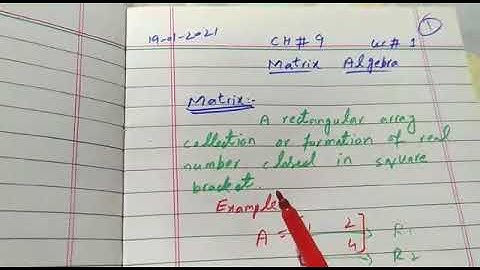 1
19-01-2021 CH # 9 Lec # 1
Matrix Algebra
Matrix:-
A rectangular array
collection or formation of real
number closed in square
bracket.
Example
A = 2 → R1
4 → R2